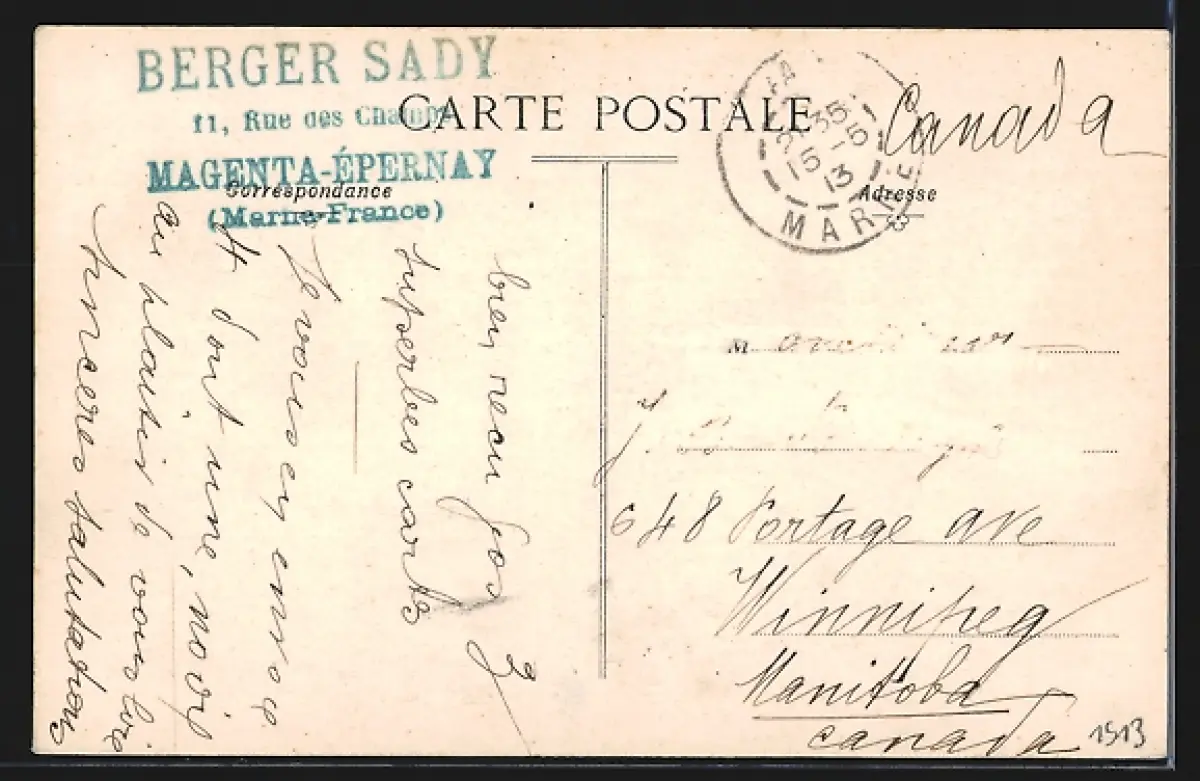 BERGER SADY
11, Rue des Champs
MAGENTA-ÉPERNAY
(Marne-France)
CARTE POSTALE
Correspondance
Adresse
15-5
13
MARNE
Canada
bien recu Jos 3
superbes carts
Je vous en envoie
4 dont une, novil
au plaisir de vous lire
sinceres salutations
M
J.
648 Portage ave
Winnipeg
Manitoba
Canada
1513